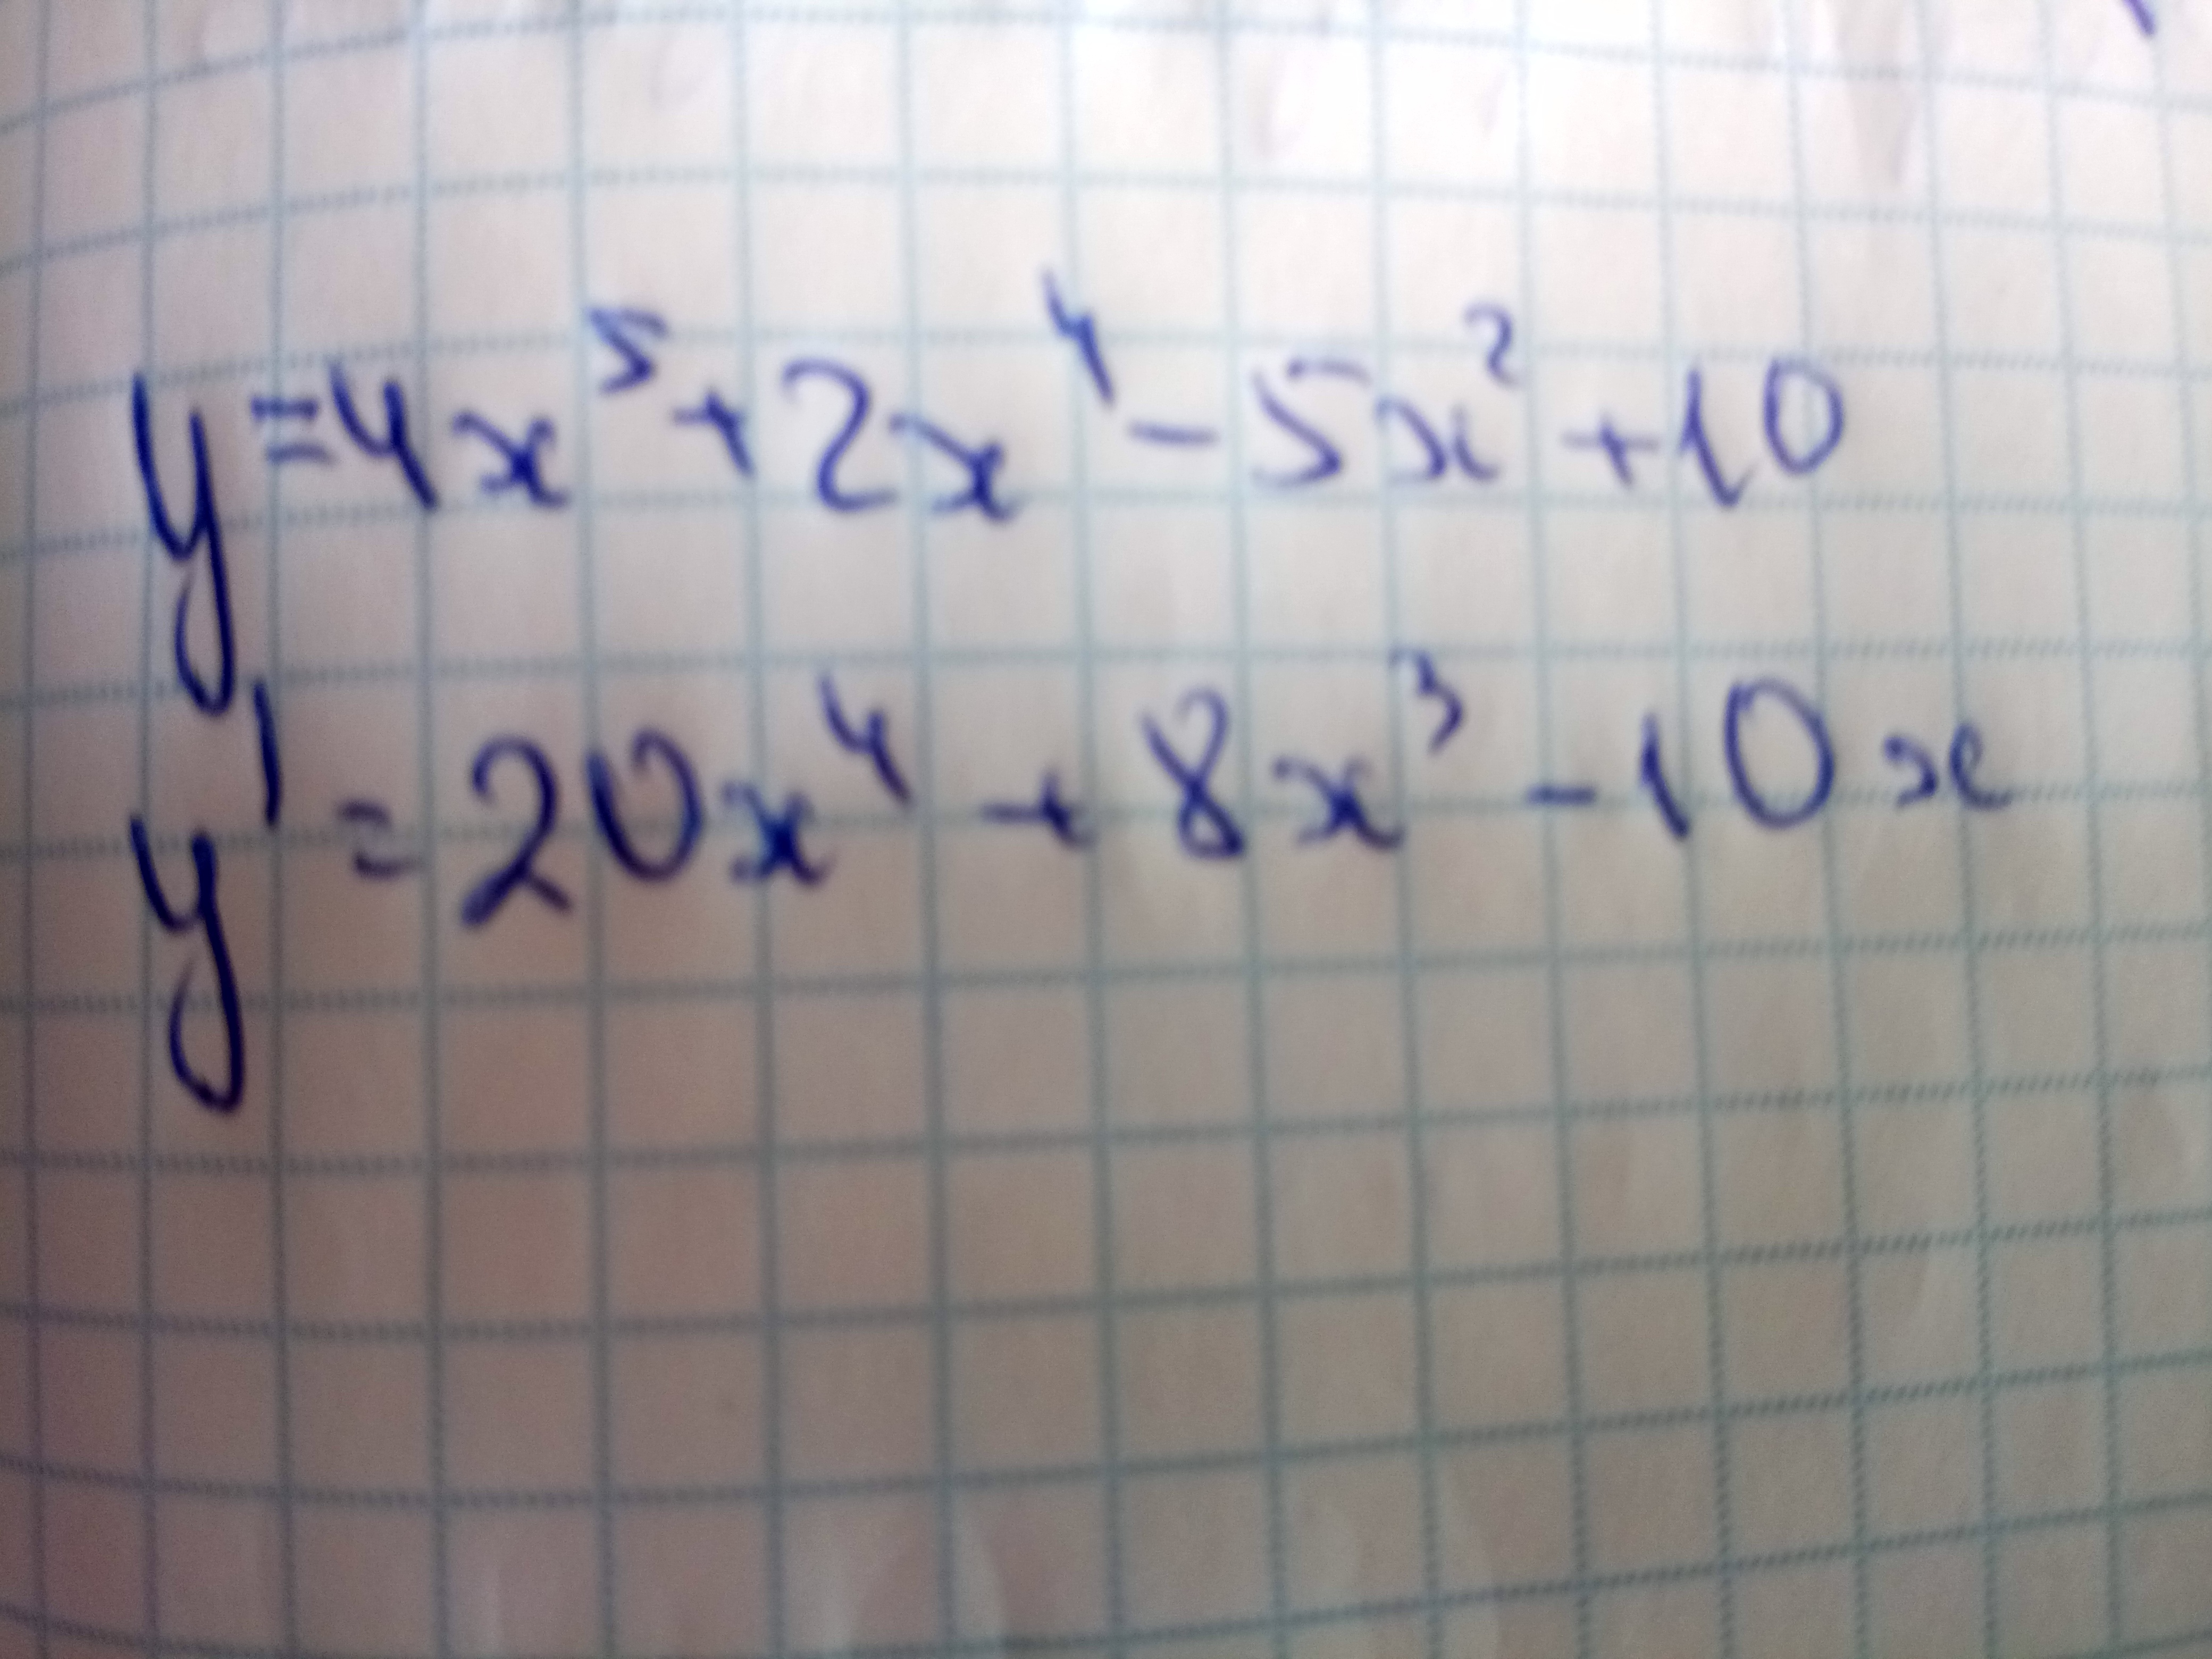 y=4x⁵+2x⁴-5x²+10
y'=20x⁴+8x³-10x